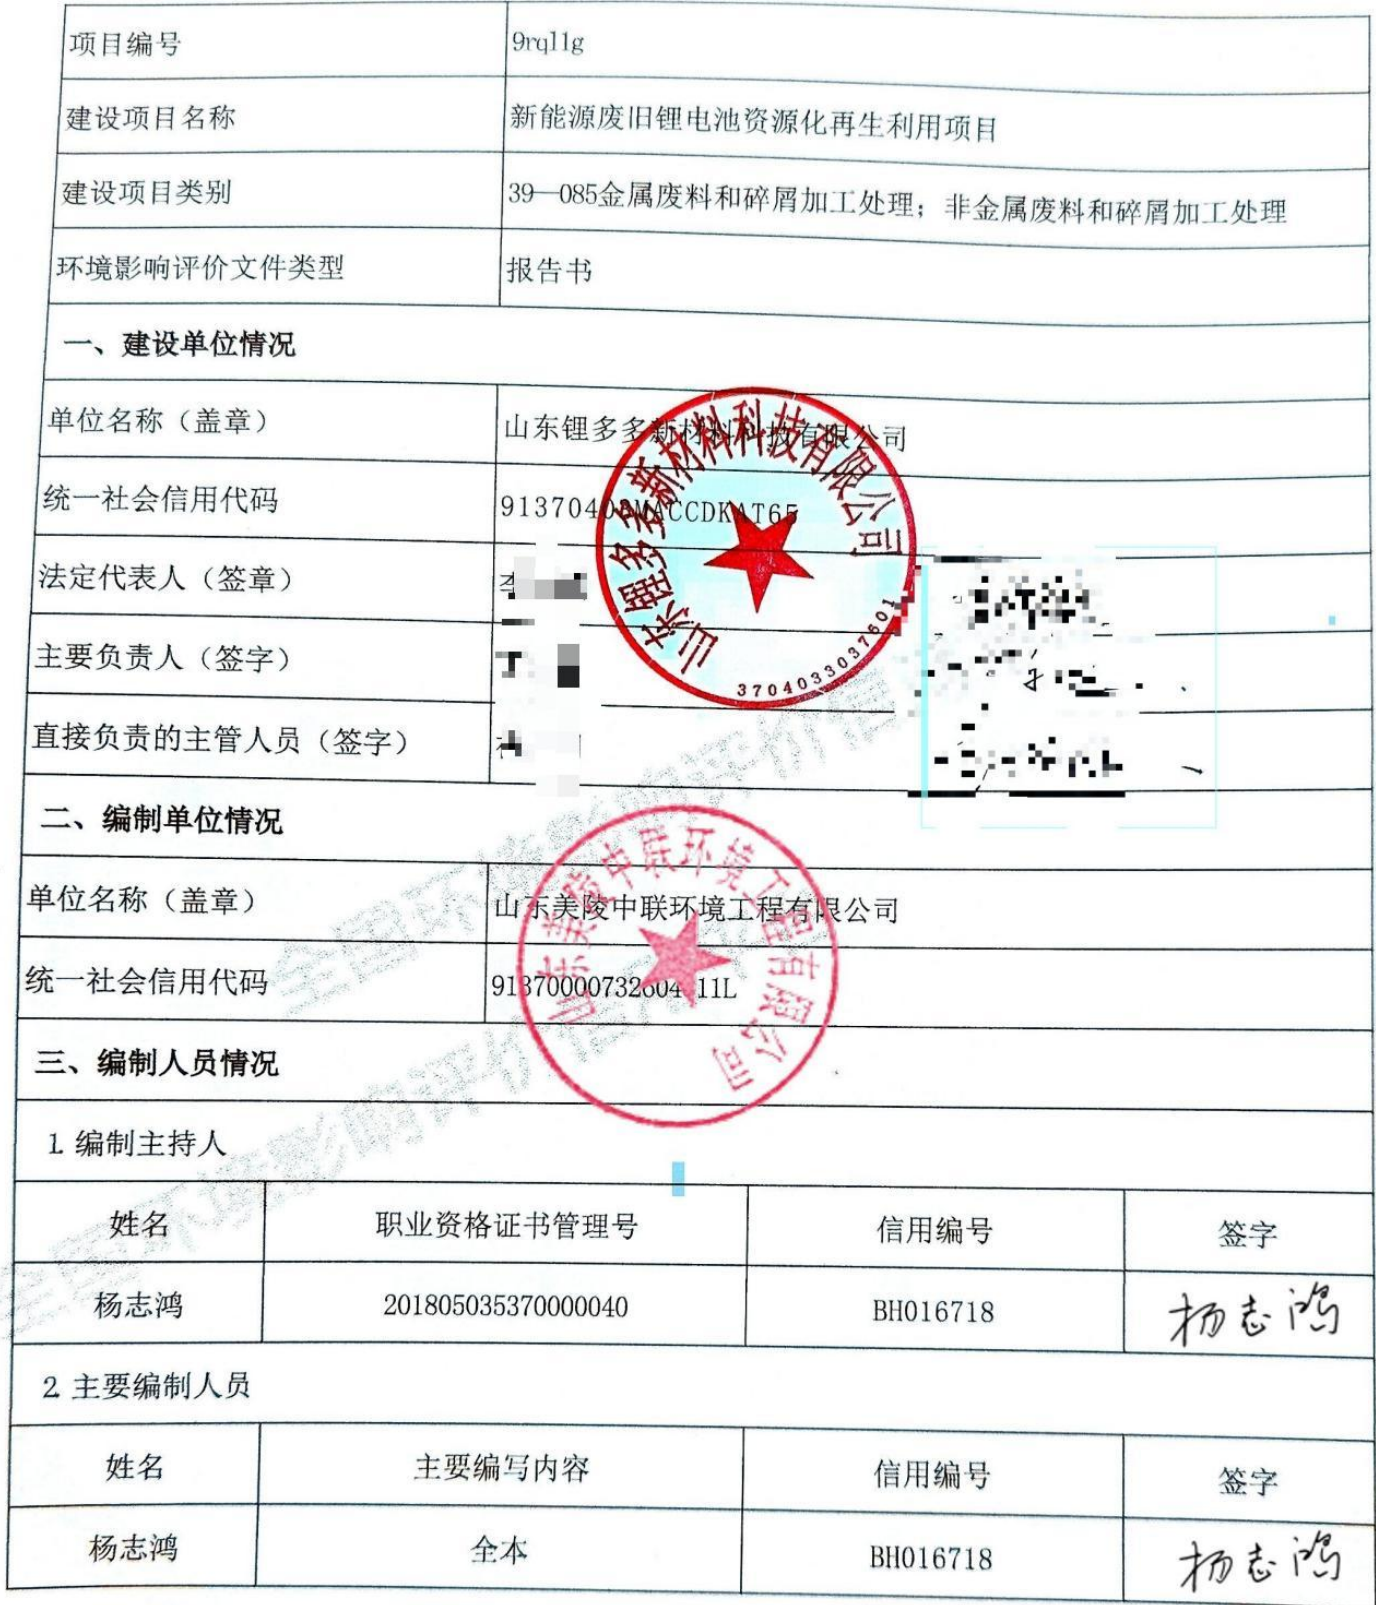 项目编号 9rql1g
建设项目名称 新能源废旧锂电池资源化再生利用项目
建设项目类别 39—085金属废料和碎屑加工处理；非金属废料和碎屑加工处理
环境影响评价文件类型 报告书
一、建设单位情况
单位名称（盖章） 山东锂多多新材料科技有限公司
统一社会信用代码 91370403MACCDKAT65
法定代表人（签章）
主要负责人（签字）
直接负责的主管人员（签字）
山东锂多多新材料科技有限公司
3704033037601
二、编制单位情况
单位名称（盖章） 山东美陵中联环境工程有限公司
统一社会信用代码
山东美陵中联环境工程有限公司
三、编制人员情况
1 编制主持人
姓名 职业资格证书管理号 信用编号 签字
杨志鸿 201805035370000040 BH016718 杨志鸿
2 主要编制人员
姓名 主要编写内容 信用编号 签字
杨志鸿 全本 BH016718 杨志鸿
全国环境影响评价信
全国环境影响评价信